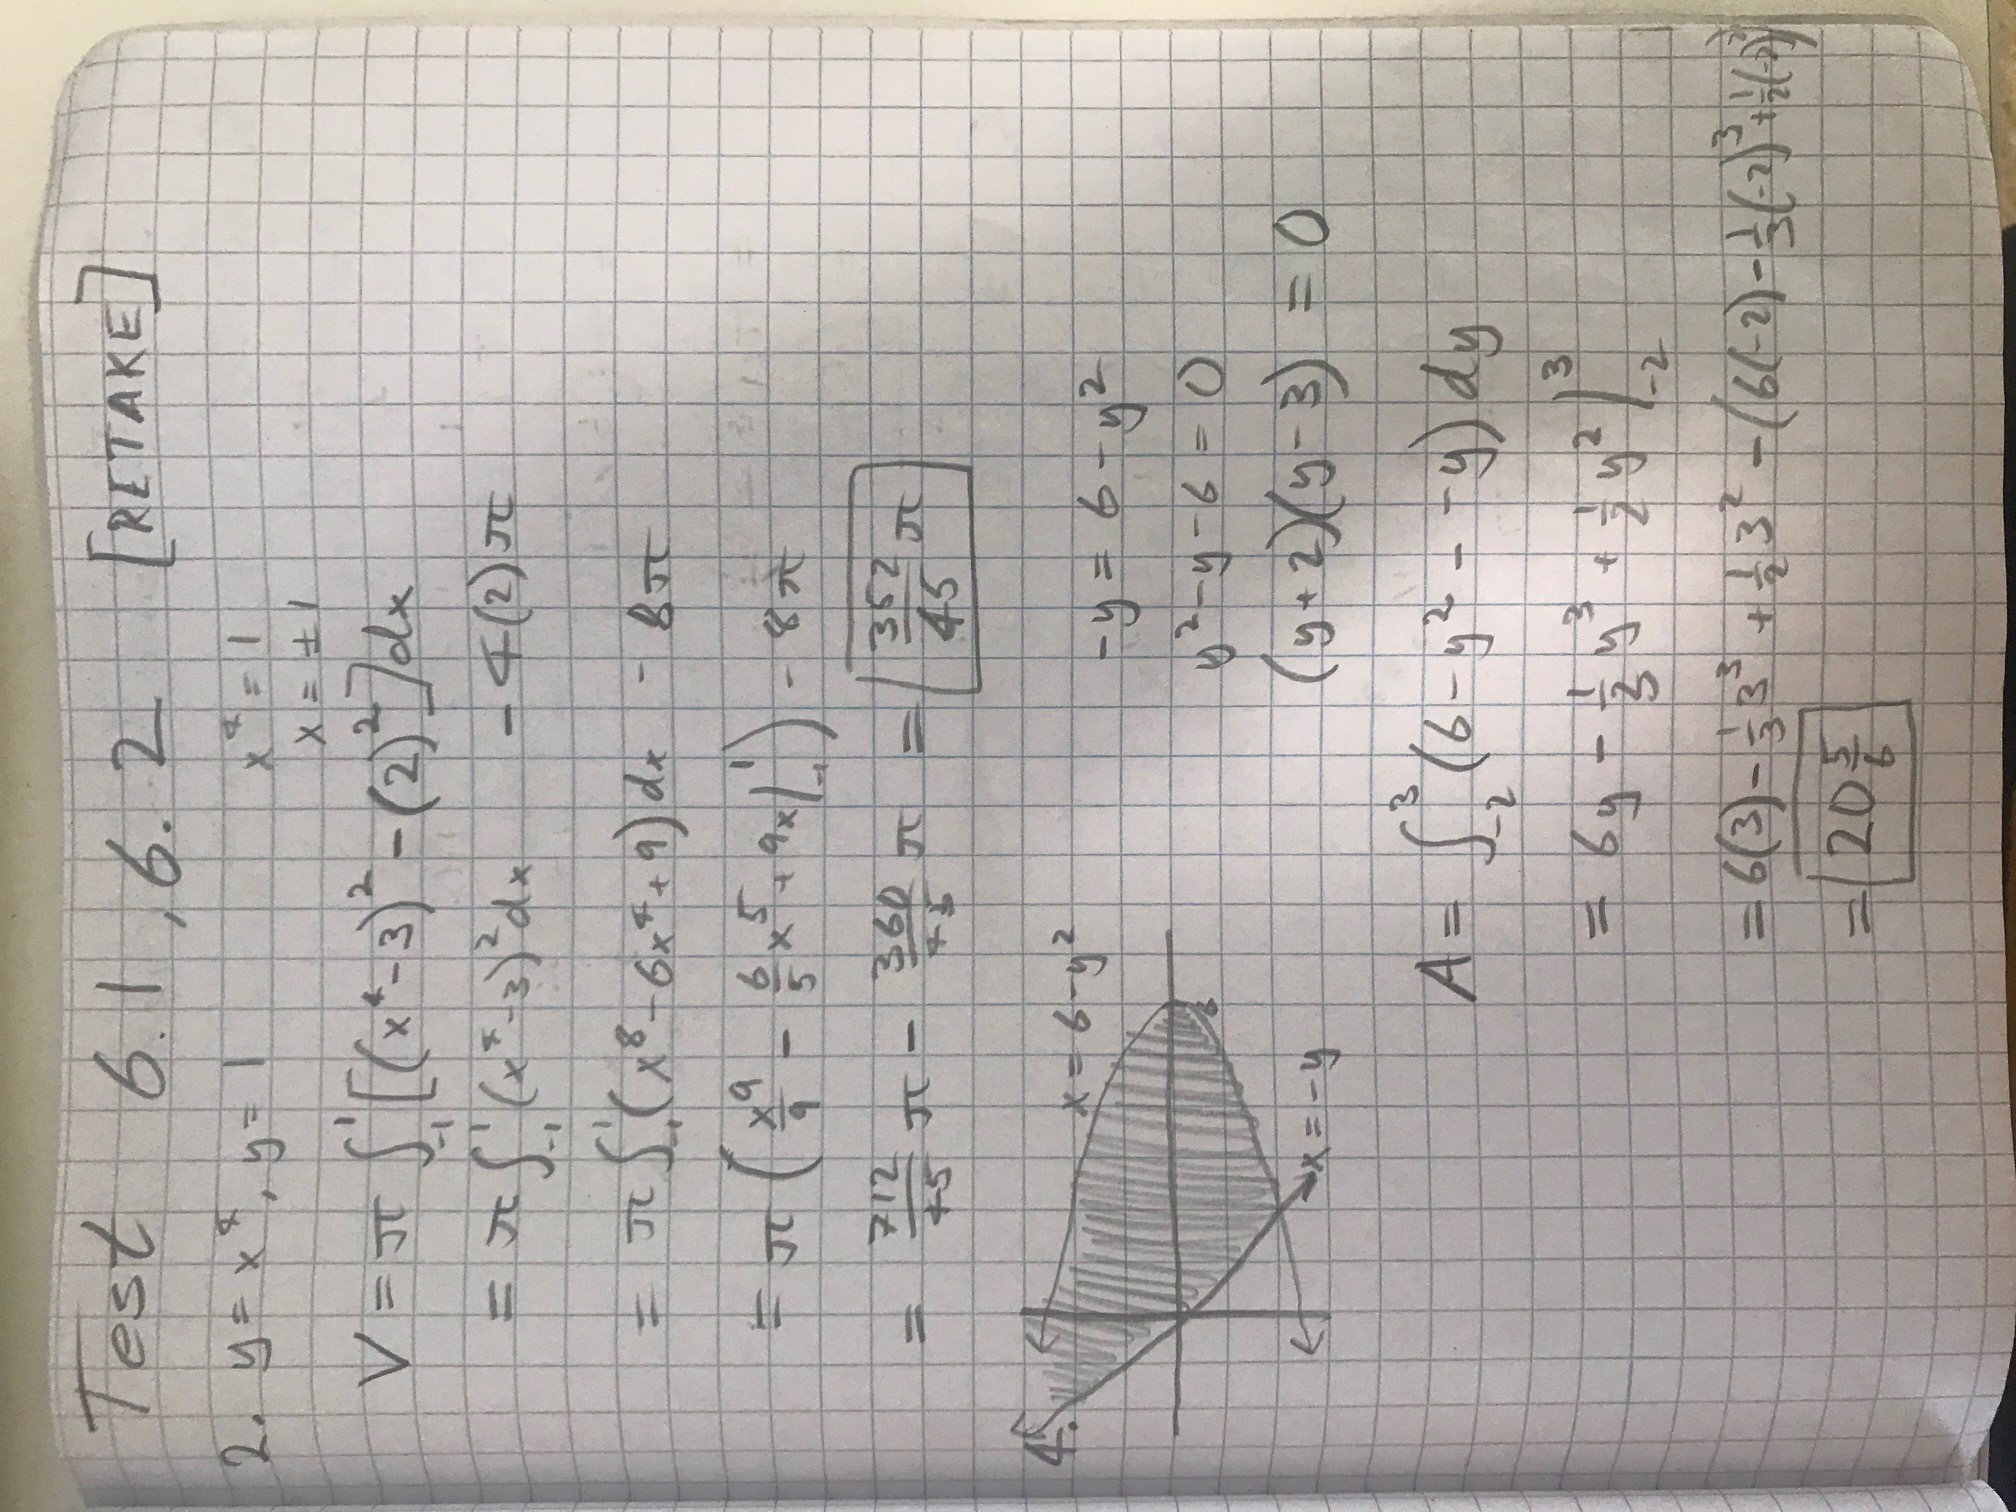 Test 6.1, 6.2 [RETAKE]
2. y = x⁴, y = 1    x⁴ = 1
x = ±1
V = π ∫₋₁¹ [(x⁴ - 3)² - (2)²] dx
= π ∫₋₁¹ (x⁴ - 3)² dx - 4(2)π
= π ∫₋₁¹ (x⁸ - 6x⁴ + 9) dx - 8π
= π (x⁹/9 - 6/5 x⁵ + 9x |₋₁¹) - 8π
= 712/45 π - 360/45 π = 352/45 π
4. x = 6 - y²    -y = 6 - y²
y² - y - 6 = 0
(y + 2)(y - 3) = 0
6
x = -y
A = ∫₋₂³ (6 - y² - -y) dy
= 6y - 1/3 y³ + 1/2 y² |₋₂³
= 6(3) - 1/3 3³ + 1/2 3² - (6(-2) - 1/3(-2)³ + 1/2(-2)²)
= 20 5/6